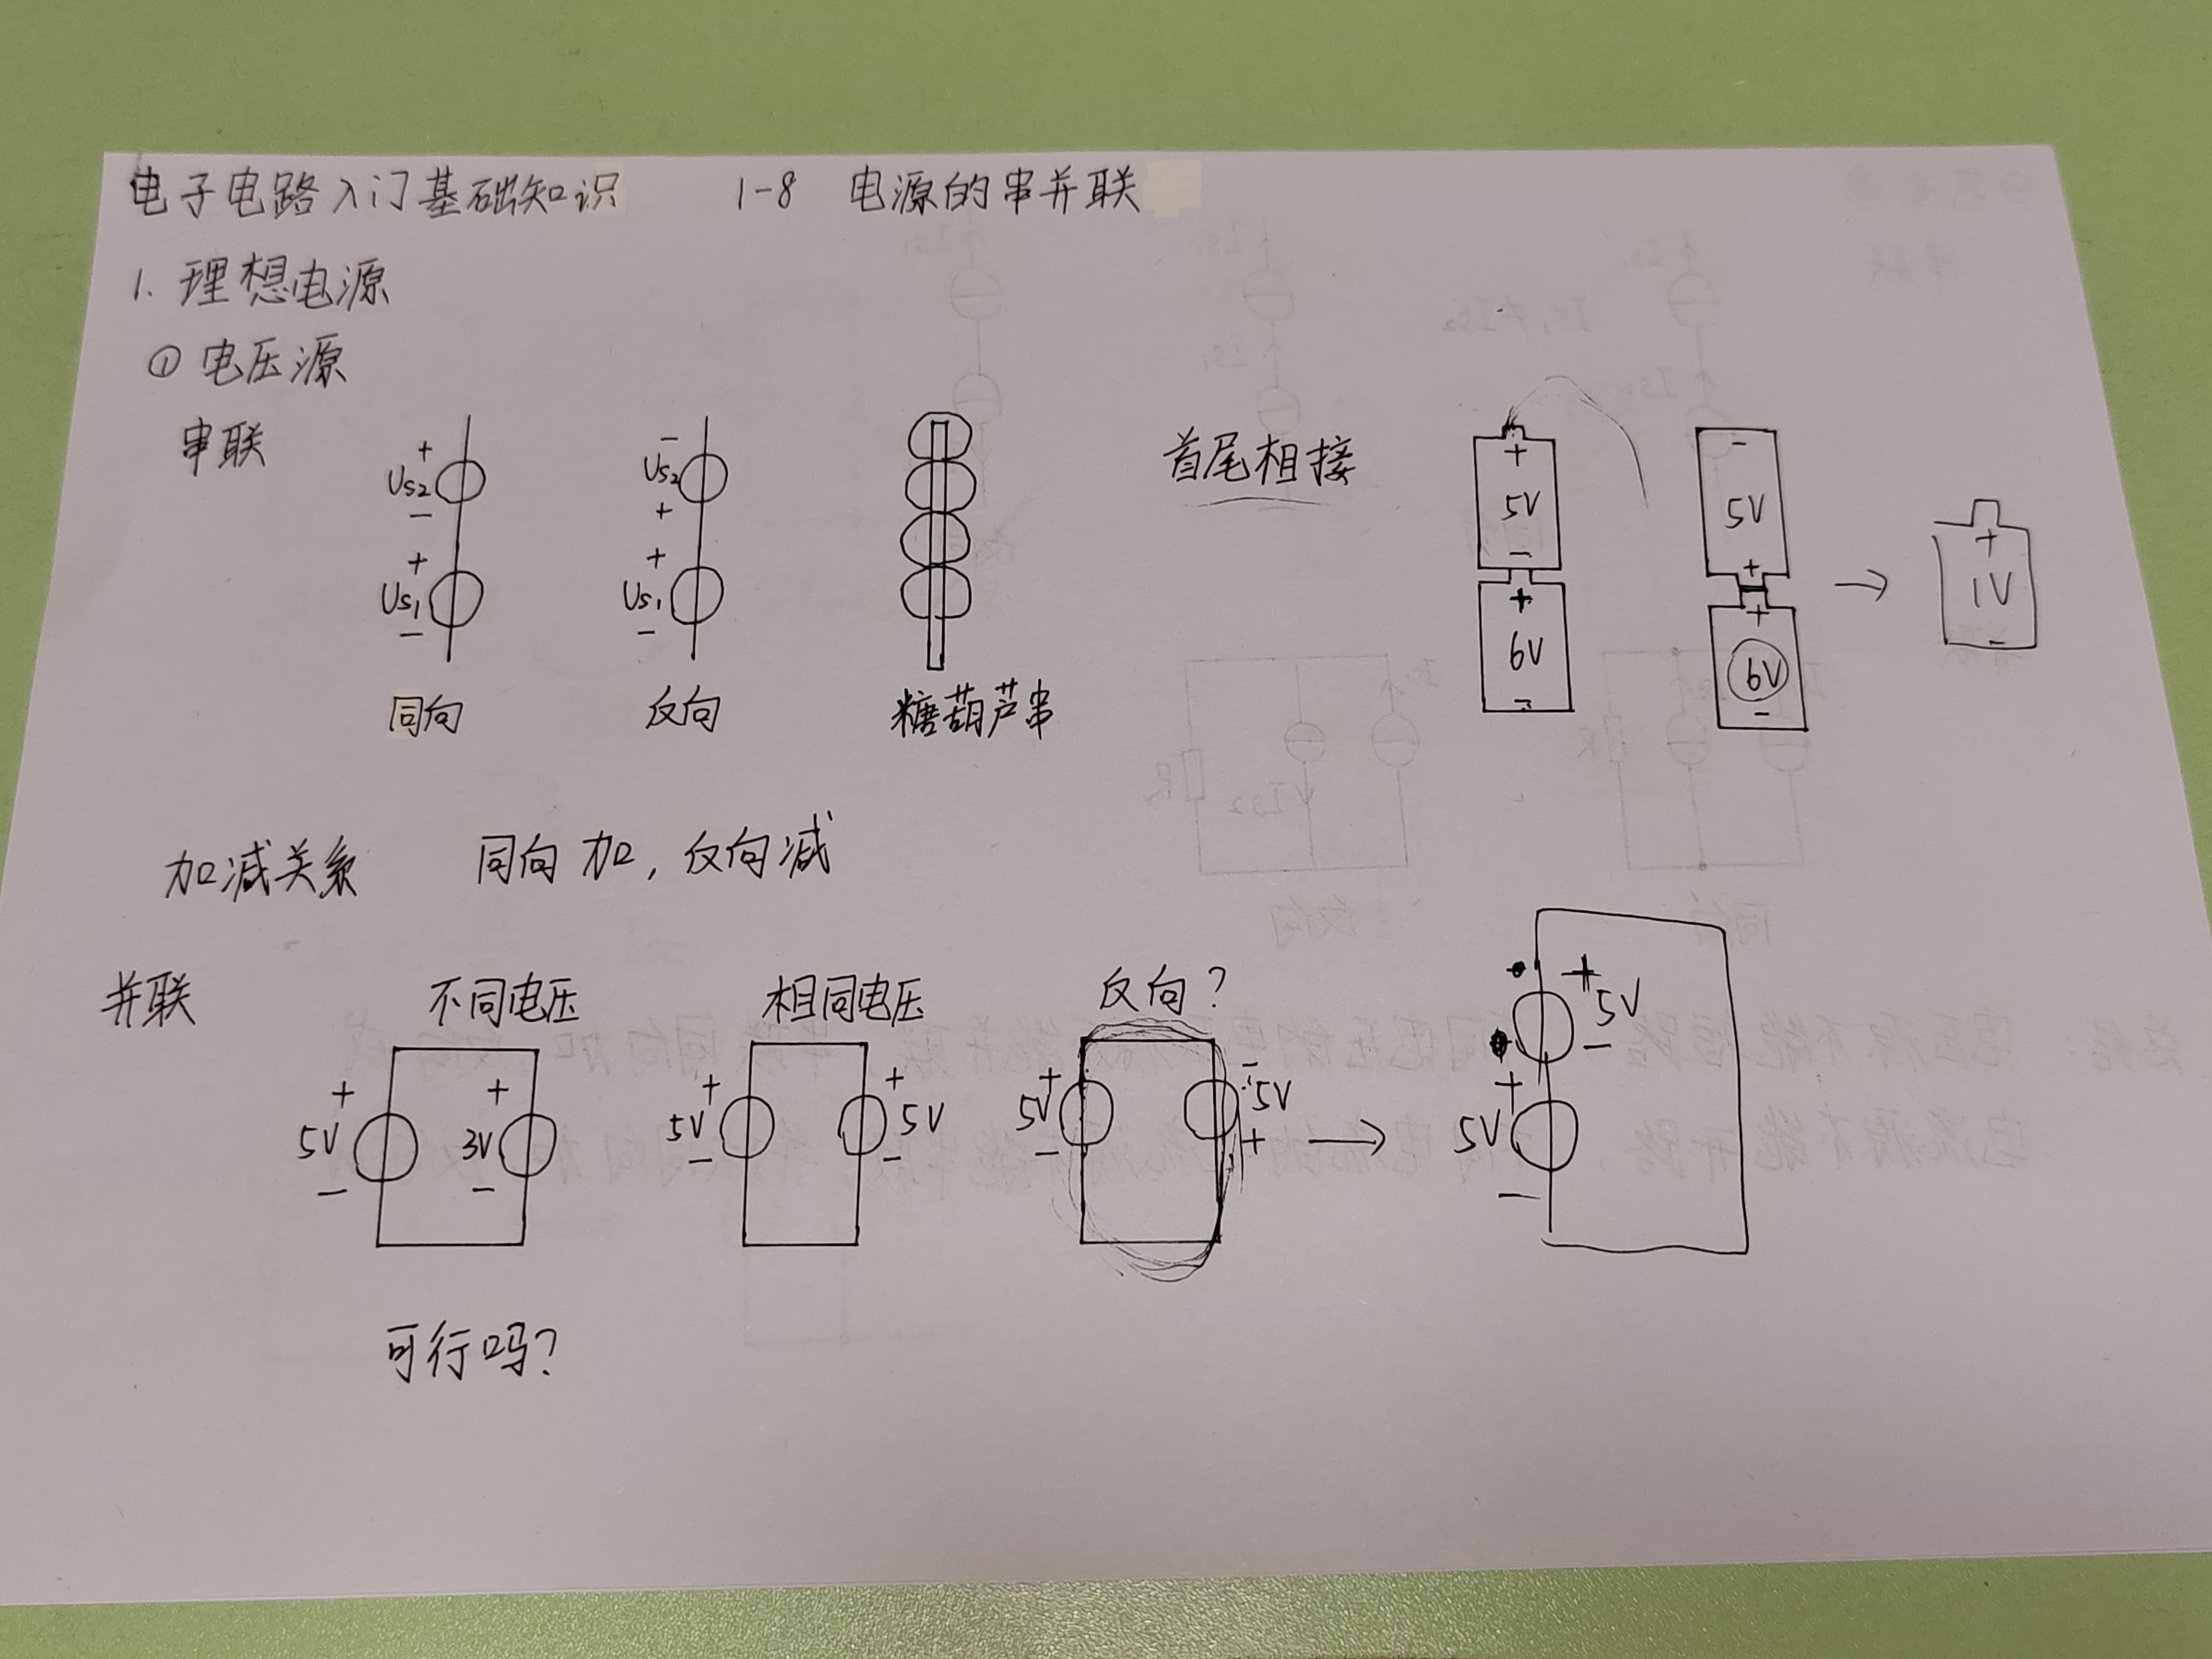 电子电路入门基础知识 1-8 电源的串并联
1. 理想电源
① 电压源
串联
+ Us2 −
+ Us1 −
同向
− Us2 +
+ Us1 −
反向
糖葫芦串
首尾相接
+ 5V −
+ 6V −
− 5V +
+ 6V −
→
+ 1V −
加减关系 同向加，反向减
并联 不同电压 相同电压 反向？
+ 5V − + 3V −
+ 5V − + 5V −
+ 5V − − 5V +
→
+ 5V −
+ 5V −
可行吗？